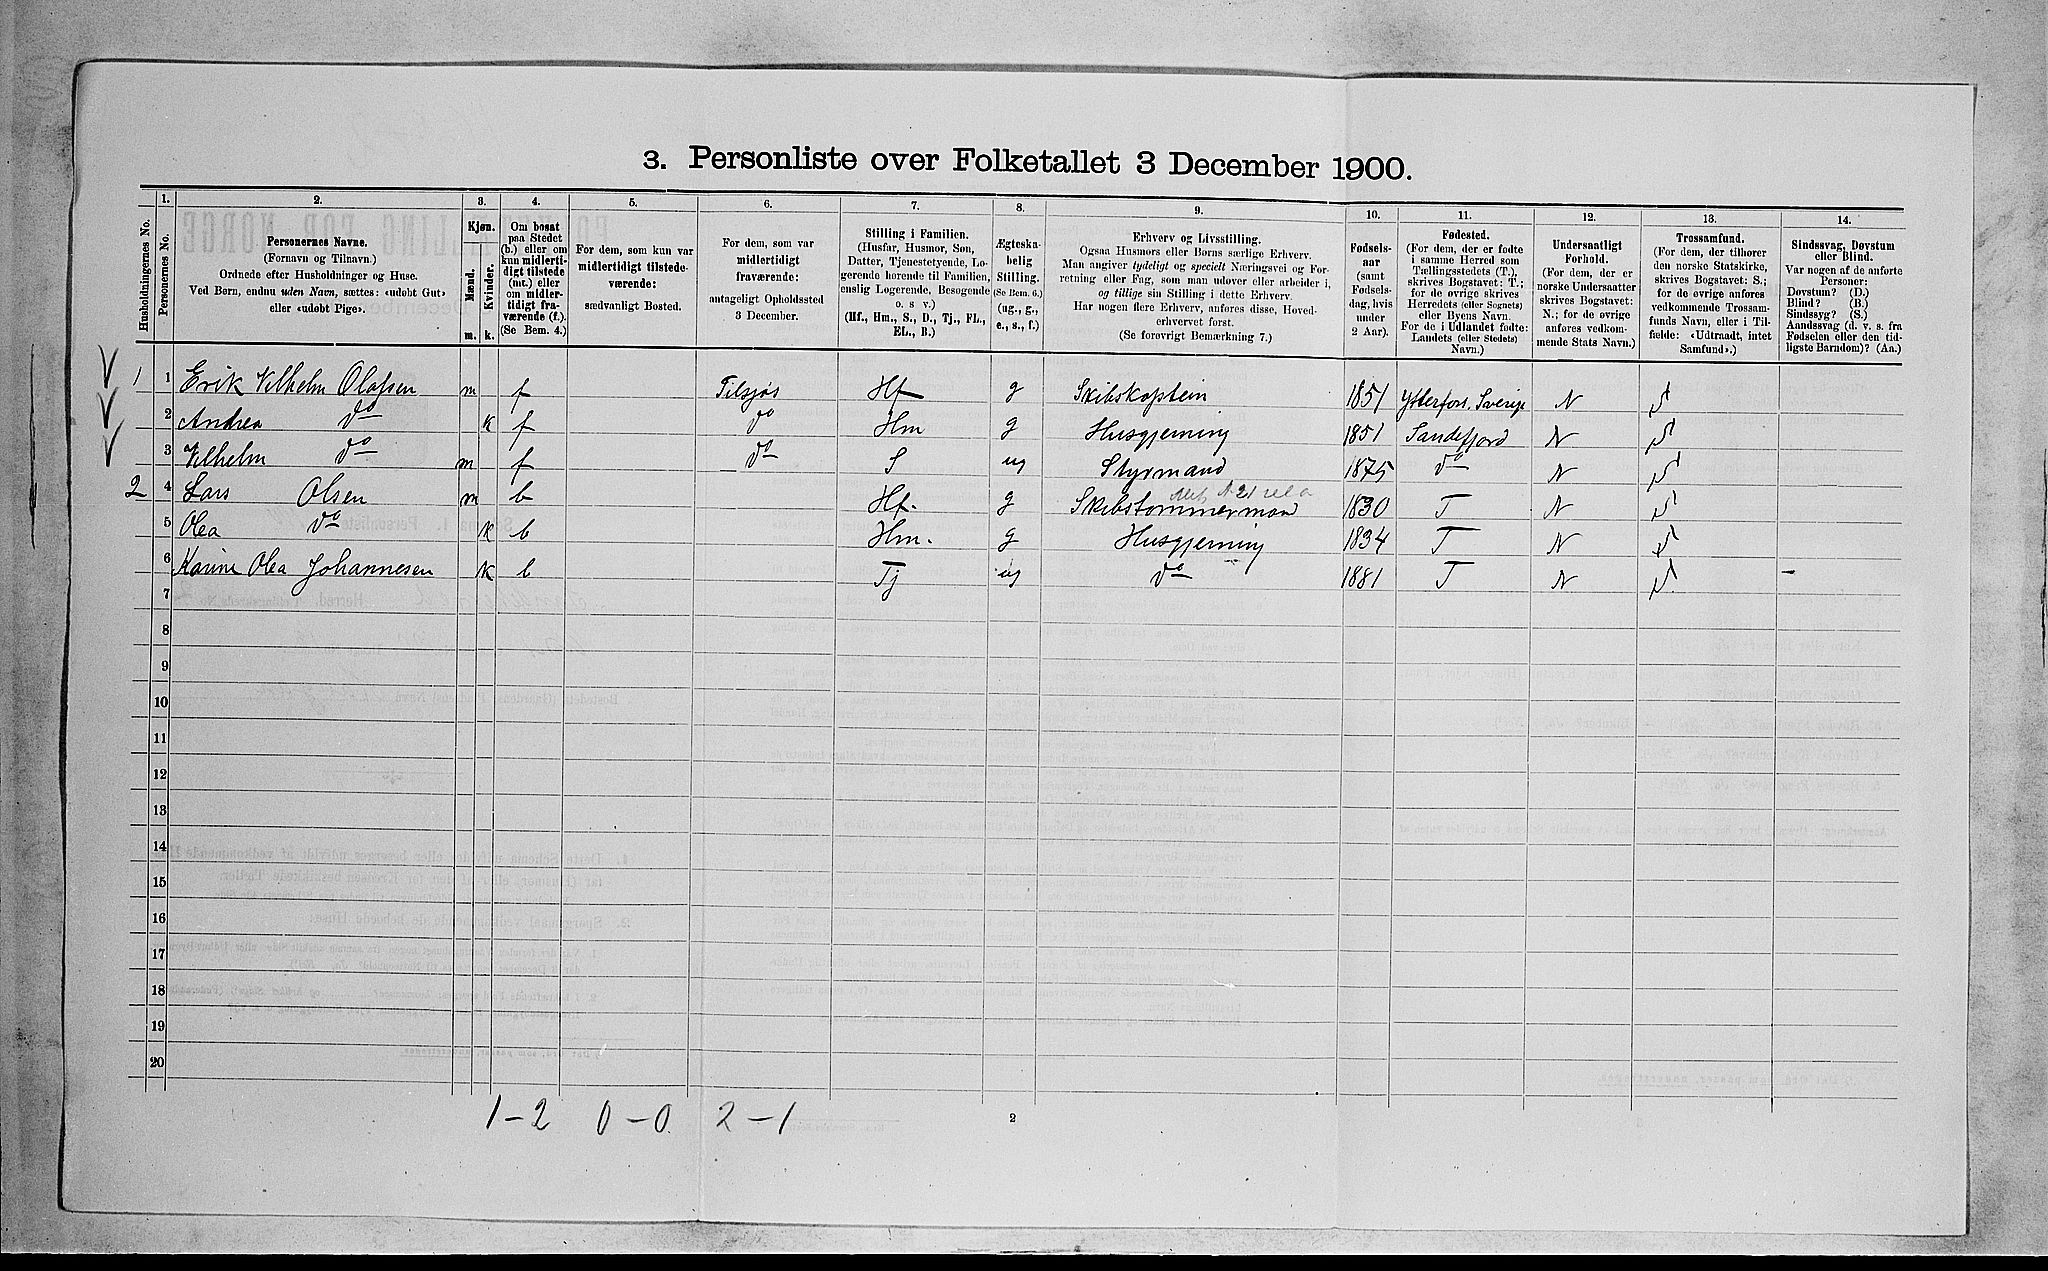 3. Personliste over Folketallet 3 December 1900.
Husholdningernes No.
1.
Personernes No.
2.
Personernes Navne.
(Fornavn og Tilnavn.)
Ordnede efter Husholdninger og Huse.
Ved Børn, endnu uden Navn, sættes: «udøbt Gut»
eller «udøbt Pige».
3.
Kjøn.
Mænd.
Kvinder.
m. k.
4.
Om bosat
paa Stedet
(b.) eller om
kun midlerti-
digt tilstede
(mt.) eller
om midler-
tidigt fra-
værende (f.).
(Se Bem. 4.)
5.
For dem, som kun var
midlertidigt tilstede-
værende:
sædvanligt Bosted.
6.
For dem, som var
midlertidigt
fraværende:
antageligt Opholdssted
3 December.
7.
Stilling i Familien.
(Husfar, Husmor, Søn,
Datter, Tjenestetyende, Lo-
gerende hørende til Familien,
enslig Logerende, Besøgende
o. s v.)
(Hf., Hm., S., D., Tj., FL.,
EL., B.)
8.
Ægteska-
belig
Stilling.
(Se Bem. 6.)
(ug., g.,
e., s., f.)
9.
Erhverv og Livsstilling.
Ogsaa Husmors eller Børns særlige Erhverv.
Man angiver tydeligt og specielt Næringsvei og For-
retning eller Fag, som man udøver eller arbeider i,
og tillige sin Stilling i dette Erhverv.
Har nogen flere Erhverv, anføres disse, Hoved-
erhvervet først.
(Se forøvrigt Bemærkning 7.)
10.
Fødsels-
aar
(samt
Fødsels-
dag, hvis
under
2 Aar).
11.
Fødested.
(For dem, der er fødte
i samme Herred som
Tællingsstedets (T.),
skrives Bogstavet: T.;
for de øvrige skrives
Herredets (eller Sognets)
eller Byens Navn.
For de i Udlandet fødte:
Landets (eller Stedets)
Navn.)
12.
Undersaatligt
Forhold.
(For dem, der er
norske Undersaatter
skrives Bogstavet:
N.; for de øvrige
anføres vedkom-
mende Stats Navn.)
13.
Trossamfund.
(For dem, der tilhører
den norske Statskirke,
skrives Bogstavet: S.;
for de øvrige anføres
vedkommende Trossam-
funds Navn, eller i Til-
fælde: «Udtraadt, intet
Samfund».)
14.
Sindssvag, Døvstum
eller Blind.
Var nogen af de anførte
Personer:
Døvstum? (D.)
Blind? (B.)
Sindssyg? (S.)
Aandssvag (d. v. s. fra
Fødselen eller den tid-
ligste Barndom)? (Aa.)
1 1 Erik Vilhelm Olafsen m f Tilsjøs Hf g Skibskaptein 1851 Ytterfors. Sverige N S
2 Andrea Do k f Do Hm g Husgjerning 1851 Sandefjord N S
3 Vilhelm Do m f Do S ug Styrmand 1875 Do N S
2 4 Lars Olsen m b Hf. g Skibstømmermand 1830 T N S
5 Olea Do k b Hm. g Husgjerning 1834 T N S
6 Karine Olea Johannesen k b Tj ug Do 1881 T N S. –
7
8
9
10
11
12
13
14
15
16
17
18
19
20
1–2 0–0 2–1
2